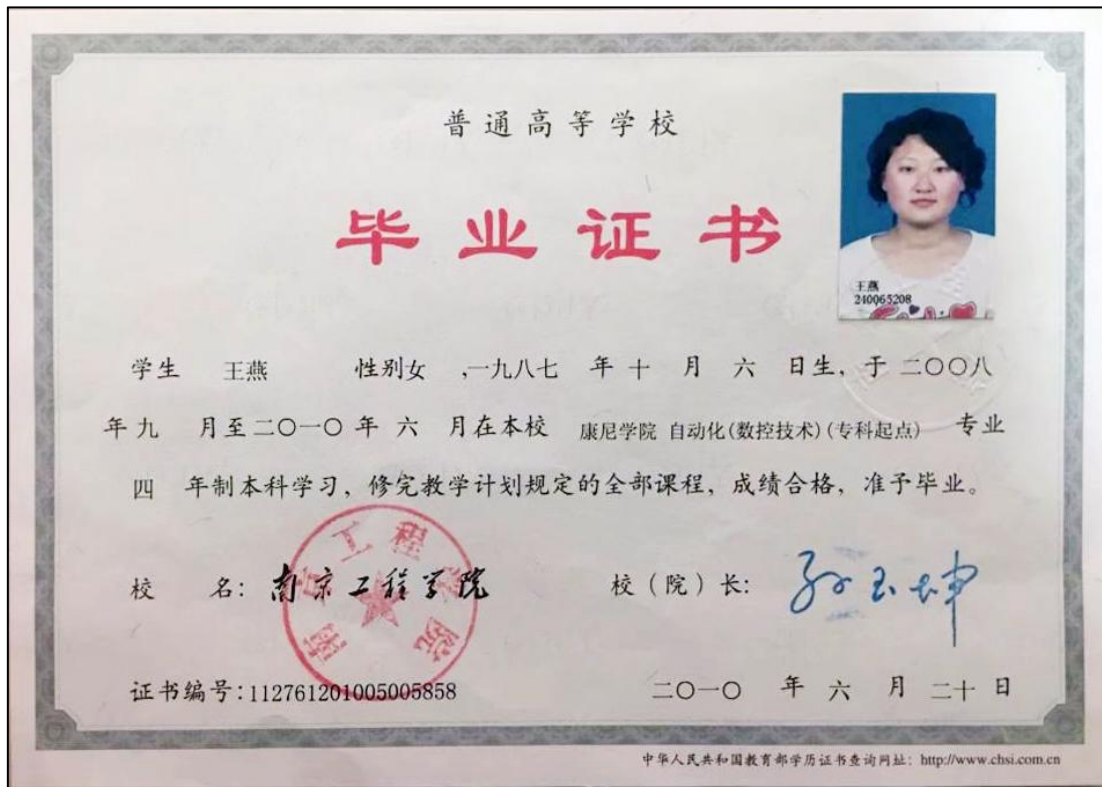 普通高等学校
毕业证书
王燕
240065208
学生 王燕 性别女 ,一九八七 年 十 月 六 日生, 于 二〇〇八
年 九 月至二〇一〇 年 六 月在本校 康尼学院 自动化(数控技术)(专科起点) 专业
四 年制本科学习, 修完教学计划规定的全部课程, 成绩合格, 准予毕业。
南京工程学院
校 名: 南京工程学院 校(院)长: 孙玉坤
证书编号:112761201005005858 二〇一〇 年 六 月 二十 日
中华人民共和国教育部学历证书查询网址: http://www.chsi.com.cn